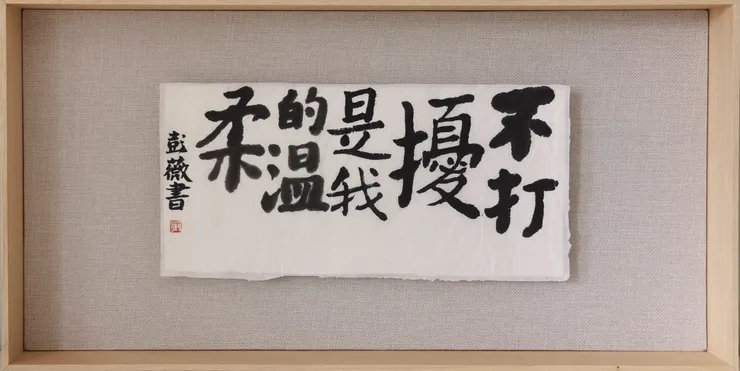 不打
擾
是我
的溫
柔
彭薇書